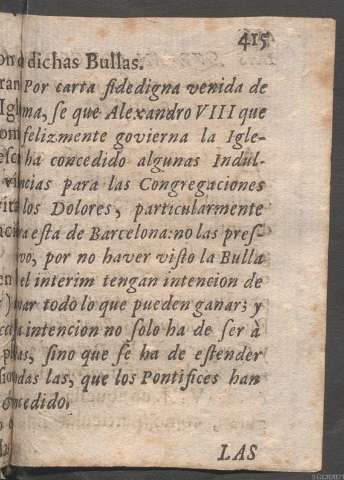 415
dichas Bullas.
Por carta fidedigna venida de
ma, se que Alexandro VIII que
felizmente govierna la Igle-
ha concedido algunas Indul-
cias para las Congregaciones
los Dolores, particularmente
a esta de Barcelona: no las pres-
vo, por no haver visto la Bulla
el interim tengan intencion de
nar todo lo que pueden ganar; y
a intencion no solo ha de ser à
as, sino que se ha de estender
das las, que los Pontifices han
ncedido,
LAS